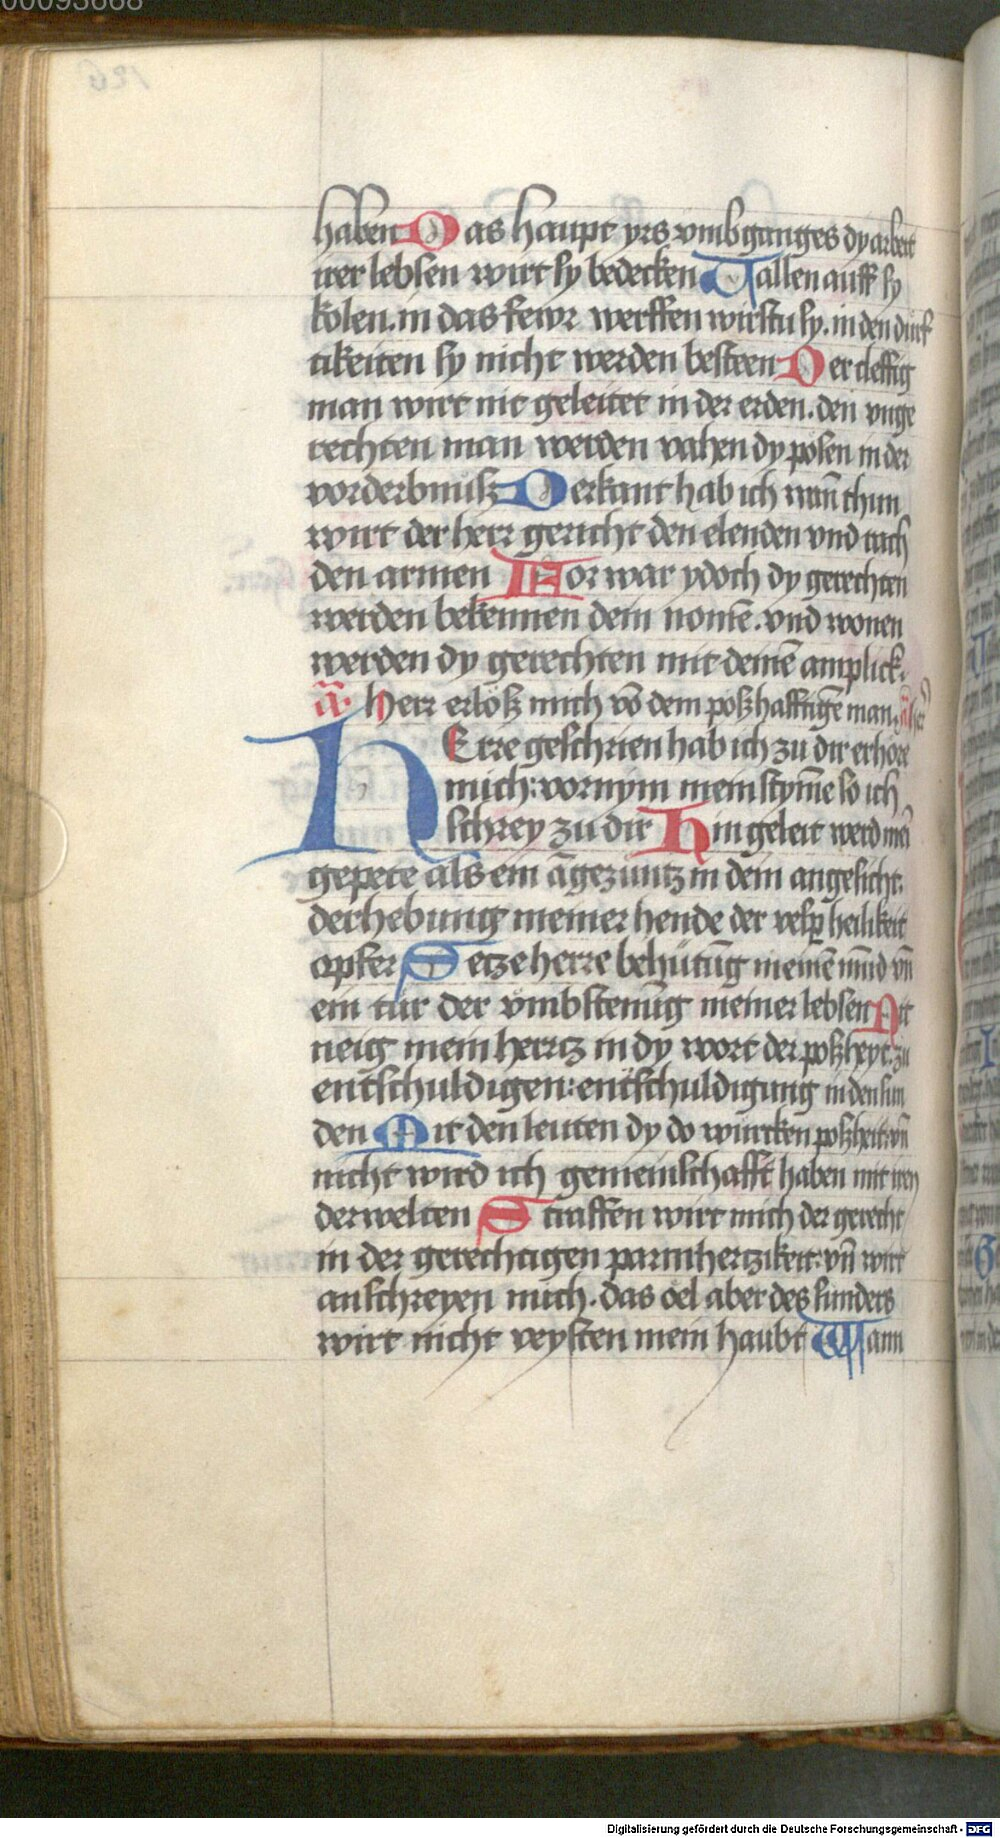 00093668
haben Das haupt yrs vmbganges dy arbeit
irer lebsen wirt sy bedecken Vallen auff sy
kolen. in das fewr werffen wirstu sy. in den dürf
tikeiten sy nicht werden besteen Der cleffig
man wirt nit geleitet in der erden. den vnge
rechten man werden vahen dy posen in der
vorderbnusz Derkant hab ich wañ thun
wirt der herr gericht den elenden vnd rach
den armen Vor war ydoch dy gerechten
werden bekennen dein nomē. vnd wonen
werden dy gerechten mit deinē amplick.
ã. Herr erlösz mich vō dem poszhafftigē man.
HErre geschrien hab ich zu dir erhöre
mich: vornym mein stym̄e so ich
schrey zu dir Hin geleit werd mein
gepete als ein ãgezüntz in dem angesicht.
derhebung meiner hende der vesp heilikeit
opfer Setze herre behütūg meinē mūd vñ
ein tür der vmbstenūg meiner lebsen Nit
neig mein hertz in dy wort der poszheyt. zu
entschuldigen: entschuldigung in den sun
den Mit den leuten dy do würcken poszheit: vñ
nicht wird ich gemeinschafft haben mit iren
derwelten Straffen wirt mich der gerecht
in der gerechtigen parmhertzikeit: vñ wirt
anschreyen mich. das oel aber des sunders
wirt nicht veysten mein haubt Wann
Digitalisierung gefördert durch die Deutsche Forschungsgemeinschaft - DFG